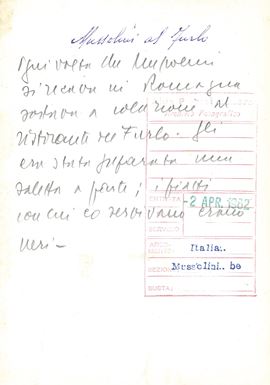 Mussolini al Furlo
Ogni volta che
in Romagna
sostava a colazione al
ristorante del Furlo. Gli
era stata preparata una
saletta a parte; i piatti
con cui lo servivano erano
neri -
Archivio Fotografico
ENTRATA -2 APR. 1982
SERVIZIO
ARGOMENTO Italia..
SEZIONE Mussolini.. be
BUSTA